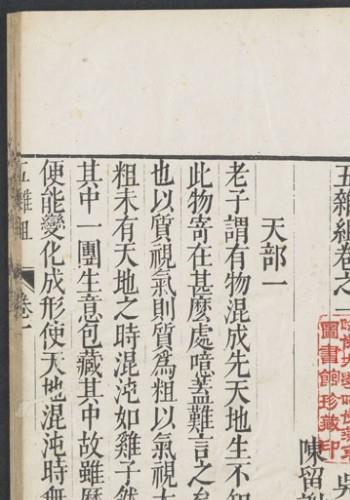 五雜組卷之一
陳留謝
圖書館珍藏印
天部一
老子謂有物混成先天地生不知
此物寄在甚麽處噫蓋難言之矣
也以質視氣則質為粗以氣視太
粗未有天地之時混沌如雞子然
其中一團生意包藏其中故雖歷
便能變化成形使天地混沌時無
五雜組 卷一